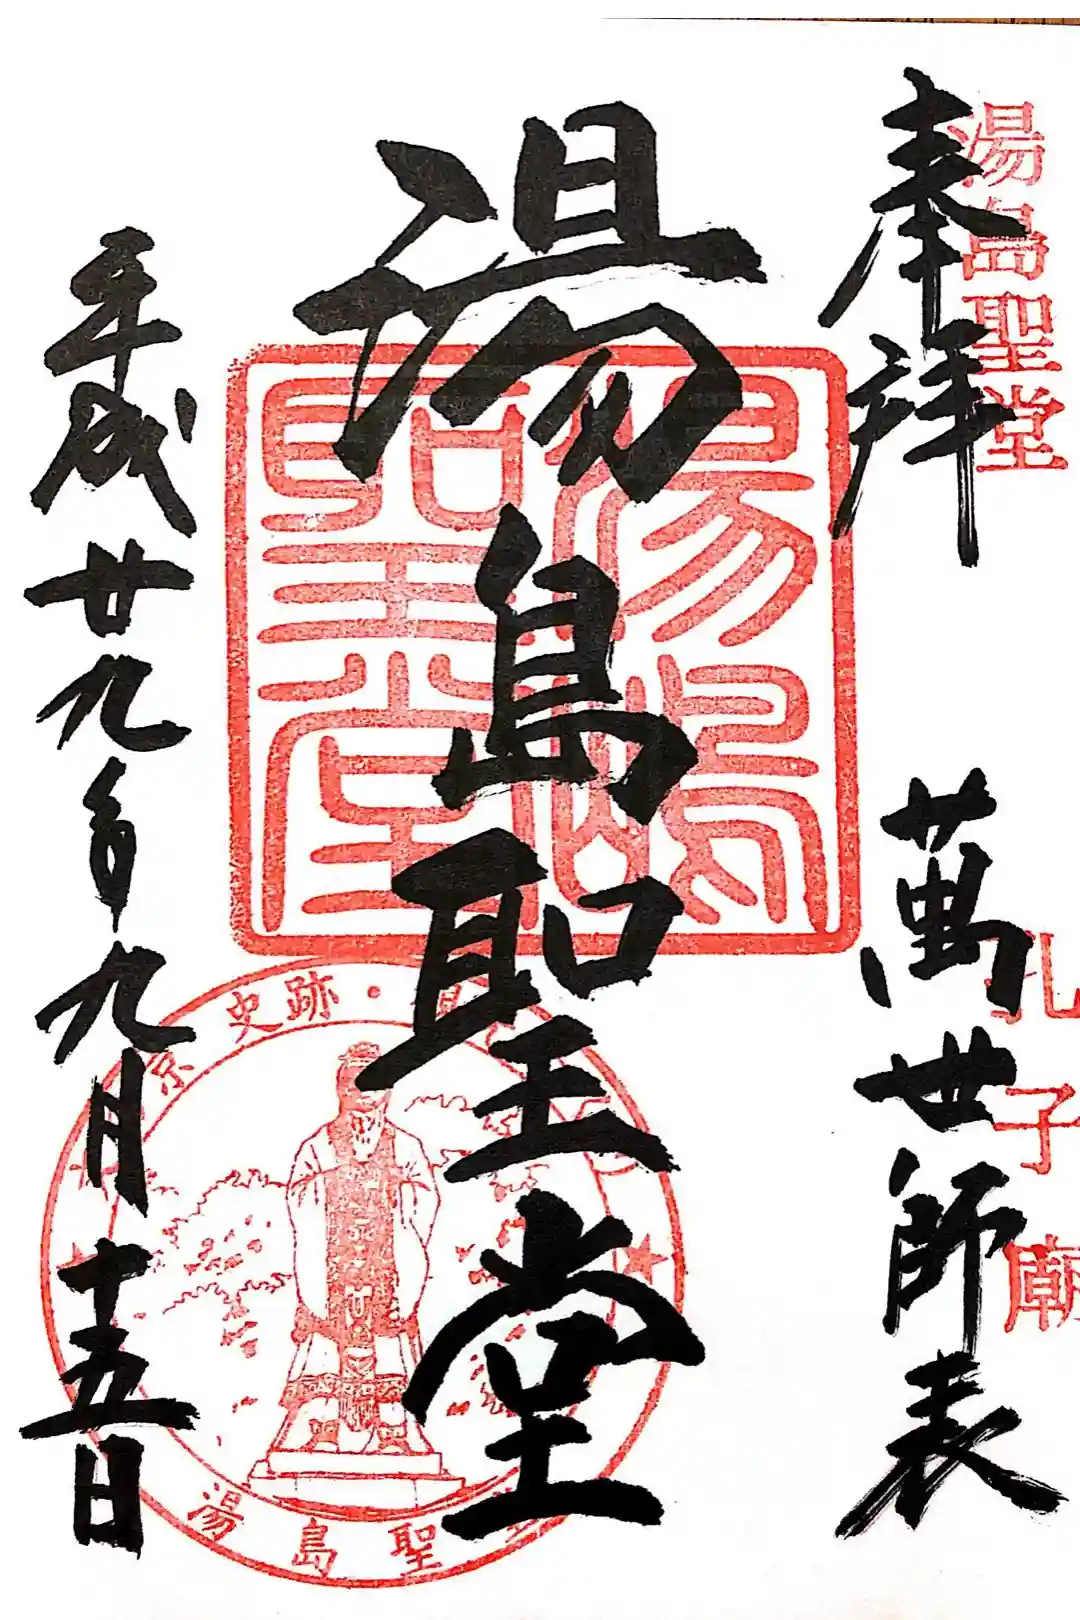 湯島聖堂
奉拝
萬世師表
孔子廟
湯島聖堂
湯島聖堂
平成廿九年九月十五日
史跡・
湯島聖